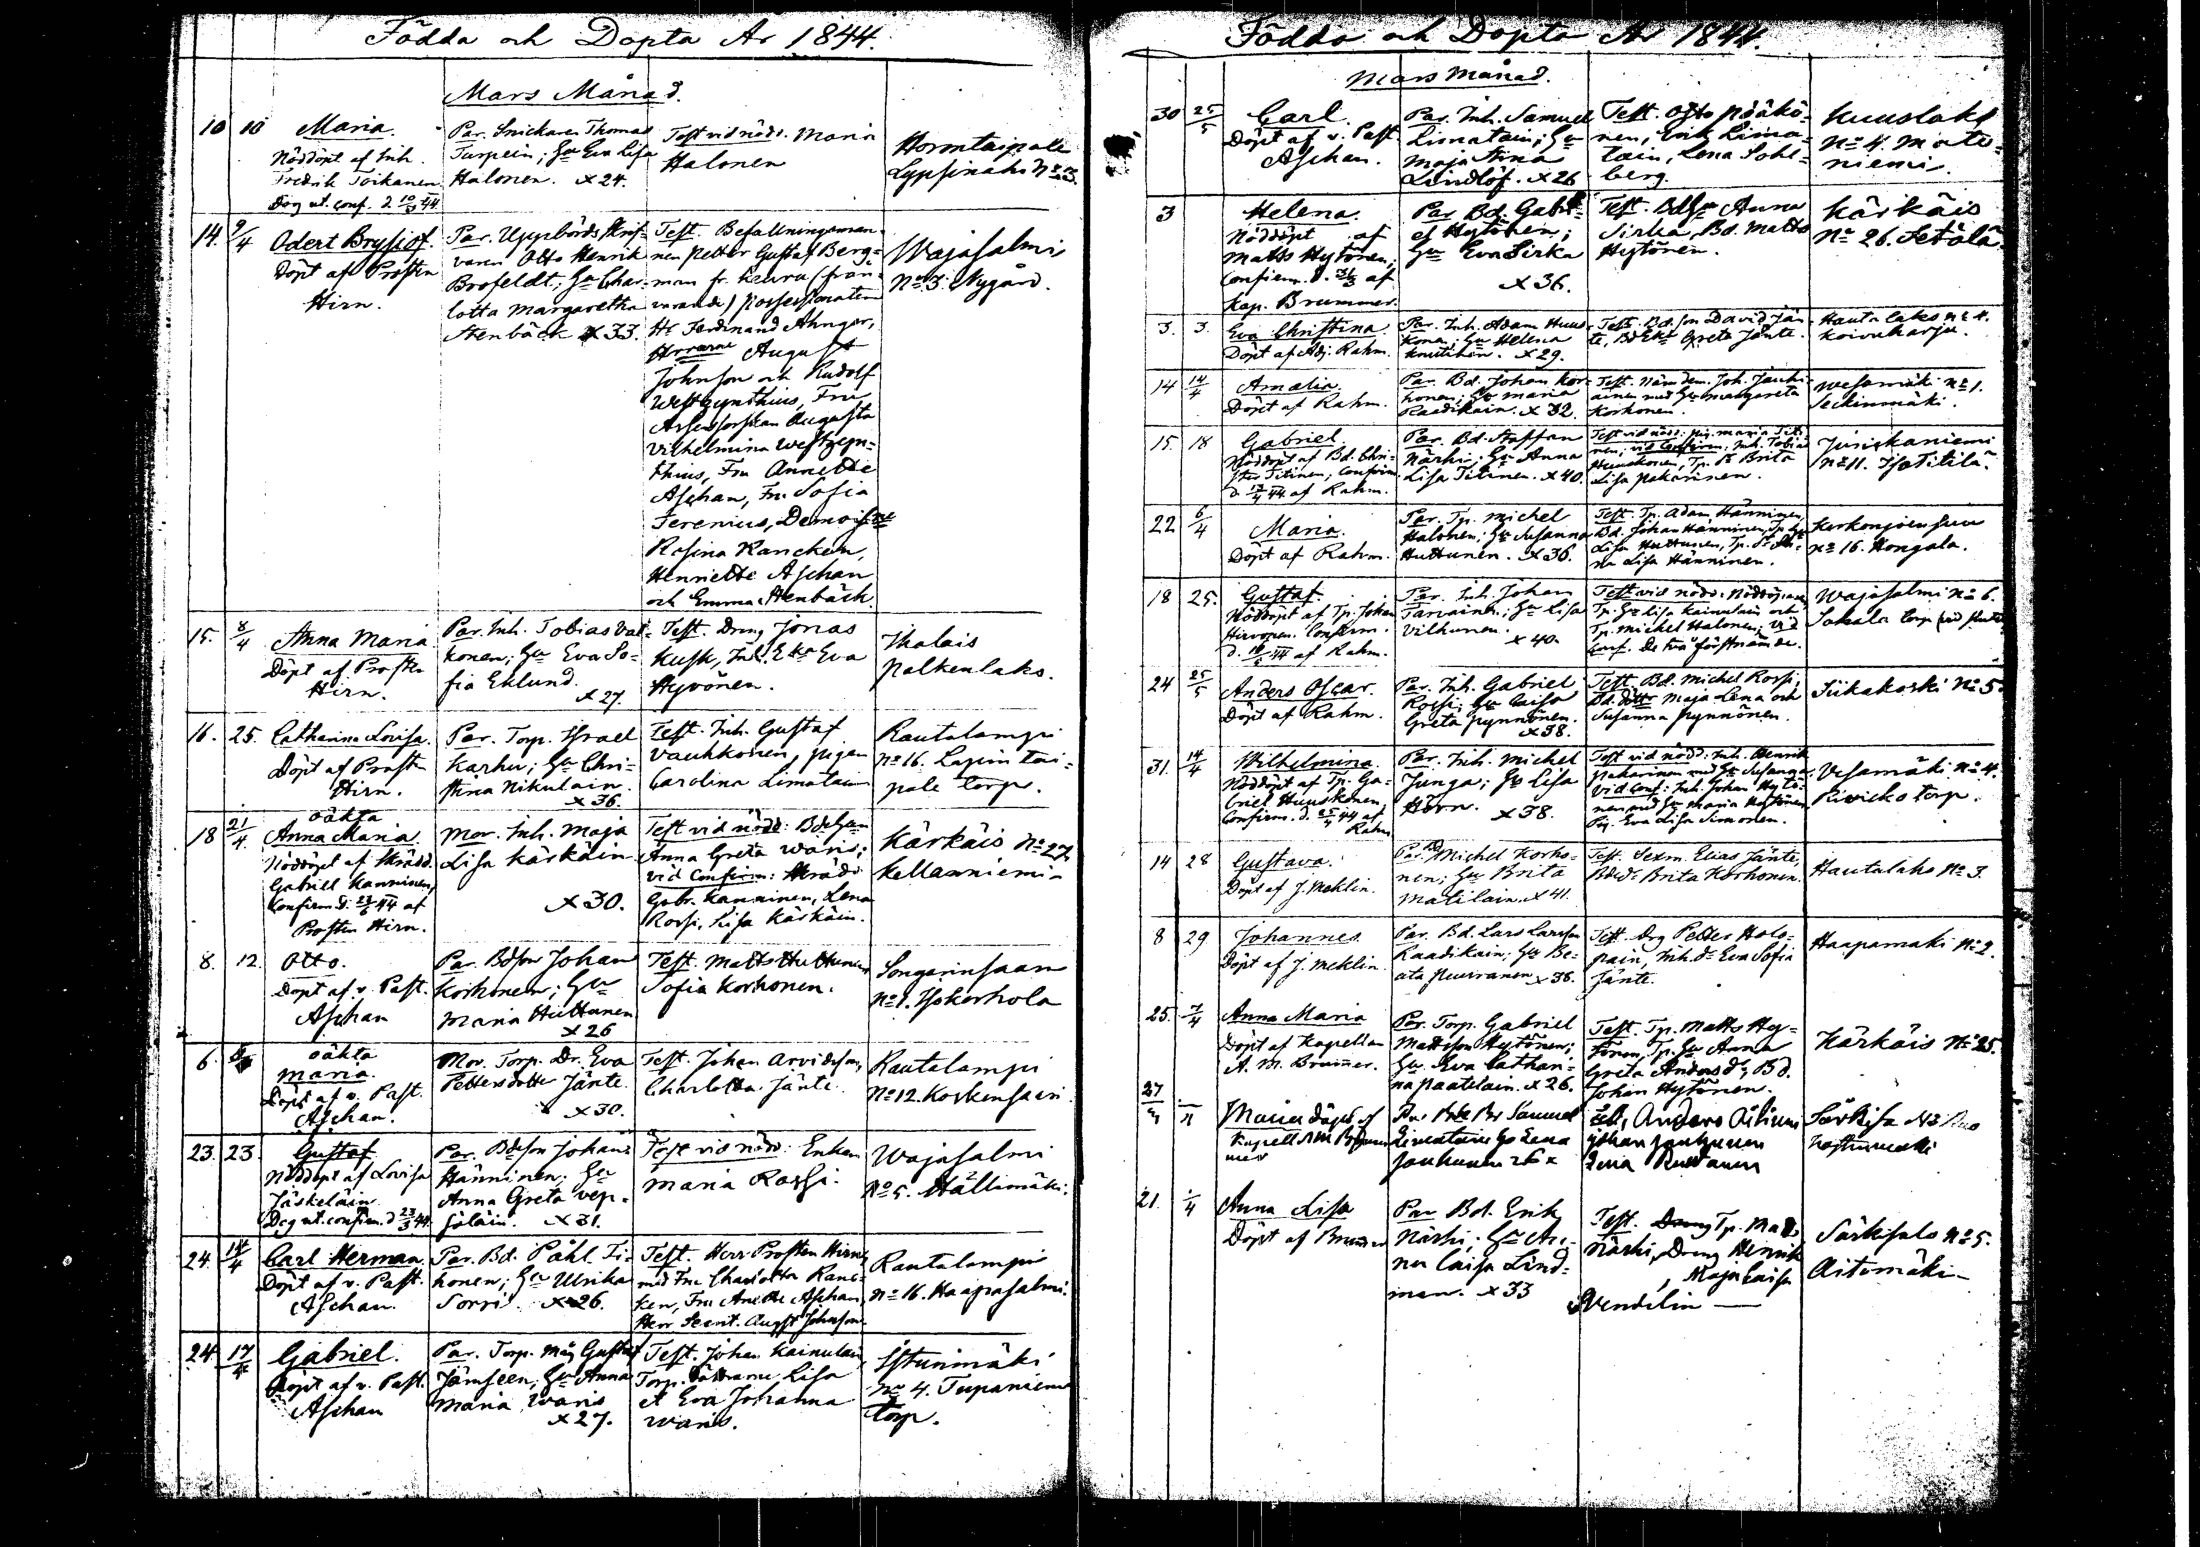 Födda och Döpta År 1844.
Mars Månad.
10 10 Maria.
Nöddöpt af Inh.
Fredrik Toikanen
Dog ut. conf. d. 10/3 44.
Par. Snickaren Thomas
Turpein; Hu Eva Lisa
Halonen. x 24.
Test vid nödd. Maria
Halonen
Horontaipale
Lypsinaho No 3.
14. 9/4
Döpt af Prosten
Hirn.
Par. Uppbörds Skrif-
varen Otto Henrik
Brofeldt; Hu Char-
lotta Margaretha
Stenbäck x 33.
Test. Befallningsman-
nen Petter Gustaf Berg-
man fr. Keuru (från-
varande) Possessionaten
Hr Ferdinand Ahnger,
Herrarne August
Johnson och Rudolf
Westzynthius, Fru
Assessorskan Augusta
Vilhelmina Westzyn-
thius, Fru Annette
Aschan, Fru Sofia
Ferenius, Demois:ne
Rosina Rancken,
Henriette Aschan
och Emma Stenbäck.
Wajasalmi
No 3. Nygård.
15. 8/4 Anna Maria
Döpt af Prosten
Hirn.
Par. Inh. Tobias Vat-
konen; Hu Eva So-
fia Eklund.
x 27.
Test. Dreng Jonas
Kusk, Inh. Eka Eva
Hyvönen.
Ihalais
palkenlaks.
16. 25. Catharina Lovisa.
Döpt af Prosten
Hirn.
Par. Torp. Israel
Karhu; Hu Chri-
stina Nikulain.
x 36.
Test. Inh. Gustaf
Vauhkonen, pigan
Carolina Limatain
Rautalampi
No 16. Lapin tai-
pale torp.
18 21/4 oäkta
Anna Maria
Nöddöpt af Skrädd.
Gabriel Kanninen,
Confirm. d. af
Prosten Hirn.
Mor. Inh. Maja
Lisa Kärkäin
x 30.
Test vid nödd:
Anna Greta Waris;
vid Confirm: Skrädd.
Gabr. Kanninen, Lena
Rossi, Lisa Kärkäin.
Kärkäis No 27.
Kellanniemi
8. 12. Otto.
Döpt af v. Past.
Aschan
Par. Bdson Johan
Korhonen; Hu
Maria Huttunen
x 26
Test. Matts Huttunen
Sofia Korhonen.
Songarinsaari
No 1.
6. oäkta
Maria.
Döpt af v. Past.
Aschan.
Mor. Torp. Dr. Eva
Pettersdotter Jänte.
x 30.
Test. Johan Arvidsson,
Charlotta Jänte.
Rautalampi
No 12. Koskensaari
23. 23. Gustaf
Nöddöpt af Lovisa
Jäskeläin
Dog ut. confirm. d 23/3 44.
Par. Bdeson Johan
Hänninen; Hu
Anna Greta Vep-
säläin. x 31.
Test vid nödd: Enkan
Maria Rossi.
Wajasalmi
No 5. Hällimäki.
24. 14/4 Carl Herman
Döpt af v. Past.
Aschan.
Par. Bd. Påhl Ti-
honen; Hu Ulrika
Sorri. x 26.
Test. Herr Prosten Hirn
med Fru Charlotta Ranc-
ken, Fru Anette Aschan,
Herr Augst Johnson.
Rautalampi
No 16. Haapasalmi.
24. 17/4 Gabriel.
Döpt af v. Past.
Aschan
Par. Torp. Måg Gustaf
Jämseen; Hu Anna
Maria Waris
x 27.
Test. Johan Kainulain,
Torp. Döttrarne Lisa
et Eva Johanna
Waris.
Istunmäki
No 4. Tupaniemi
torp.
Födda och Döpta År 1844.
Mars Månad.
30 25/5 Carl.
Döpt af v. Past
Aschan.
Par. Inh. Samuel
Limatain; Hu
Maja Stina
Lindlöf. x 26
Test. Otto Pääkö-
nen, Erik Lima-
tain, Lena Sohl-
berg.
Kuuslaks
No 4. Mate-
niemi.
3 Helena.
Nöddöpt af
Matts Hytönen,
Confirm. d. 31/3 af
Kap. Brummer.
Par. Bd. Gabri-
el Hytönen;
Hu Eva Sirka
x 36.
Test. Anna
Sirka, Bd. Matts
Hytönen.
Kärkäis
No 26. Setälä.
3. 3. Eva Christina.
Döpt af Adj. Rahm.
Par. Inh. Adam Huus-
konen; Hu Helena
Knutinen. x 29.
Test. Bd. son David Jän-
te, Greta Jänte.
Hautalaks No 4.
Koivuharju.
14 14/4 Amalia.
Döpt af Rahm.
Par. Bd. Johan Kor-
honen; Hu Maria
Raadikain. x 32.
Test. Nämdem. Joh. Jauhi-
ainen med Hu Margareta
Korhonen.
Wesamäki No 1.
Seckinmäki.
15. 18 Gabriel.
Nöddöpt af Bd. Chri-
ster Titinen, Confirm.
d. af Rahm.
Par. Bd. Staffan
Närhi; Hu Anna
Lisa Titinen. x 40.
Test vid nödd: pig. Maria Titi-
nen; vid Confirm: Inh. Tobias
Huuskonen, Tp. Dr Brita
Lisa Pakarinen.
No 11.
22 6/4 Maria.
Döpt af Rahm.
Par. Tp. Michel
Halonen; Hu Susanna
Huttunen. x 36.
Test. Tp. Adam Hänninen,
Bd. Johan Hänninen, Tp. Hu
Lisa Huttunen,
Lisa Hänninen.
Kerkonjoensuu
No 16. Hongala.
18 25. Gustaf.
Nöddöpt af Tp. Johan
Hirvonen. Confirm.
d. af Rahm.
Par. Inh. Johan
Tarvainen; Hu Lisa
Vilhunen.
x 40.
Test vid nödd:
Tp. Hu Lisa Kainulain och
Tp. Michel Halonen; vid
Conf. De två förstnämde.
Wajasalmi No 6.
torp
24 25/5 Anders Oscar.
Döpt af Rahm.
Par. Inh. Gabriel
Rossi; Hu Caisa
Greta Pynnönen.
x 38.
Test. Bd. Michel Rossi,
Bd. Döttr Maja Lena och
Susanna Pynnönen.
Siikakoski No 5.
31. 14/4 Wilhelmina.
Nöddöpt af Tp. Ga-
briel Huuskonen,
Confirm. d. af
Rahm
Par. Inh. Michel
Junga; Hu Lisa
x 38.
Test vid nödd: Inh. Henrik
Pakarinen med Hu Susanna.
vid Conf: Inh. Johan Hytö-
nen med Hu Maria Hytönen,
Pig. Eva Lisa Simonen.
Vesamäki No 4.
torp.
14 28 Gustava.
Döpt af J. Mehlin.
Par. Bd Michel Korho-
nen; Hu Brita
Matilain. x 41.
Test. Sexm. Elias Jänte,
Brita Korhonen.
Hautalaks No 3.
8 29 Johannes
Döpt af J. Mehlin.
Par. Bd. Lars Larsson
Raadikain; Hu Be-
ata Puuranen x 36.
Test. Drg Petter Halo-
pain, Inh. dr Eva Sofia
Jänte.
Haapamäki No 2.
25. 7/4 Anna Maria
Döpt af Kapellan
A. M. Brumer.
Par. Torp. Gabriel
Mattsson Hytönen;
Hu Eva Cathari-
na Paatelain. x 26.
Test. Tp. Matts Hy-
tönen, Tp. Hu Anna
Greta Anders dr, Bd.
Johan Hytönen.
Kärkäis No 25.
27 Maria döpt af
Kapell AM Brum
mer
Samuel
Limatain Hu Lena
Jauhunen 26 x
Anders
Johan Jauhunen
Särkisalo No
21. 4 Anna Lisa
Döpt af Brumer
Par Bd. Erik
Närhi; Hu An-
na Caisa Lind-
man. x 33
Test. Tp. Matts
Närhi, Dreng Henrik
, Maja Caisa
Wendelin
Särkisalo No 5.
Aitomäki